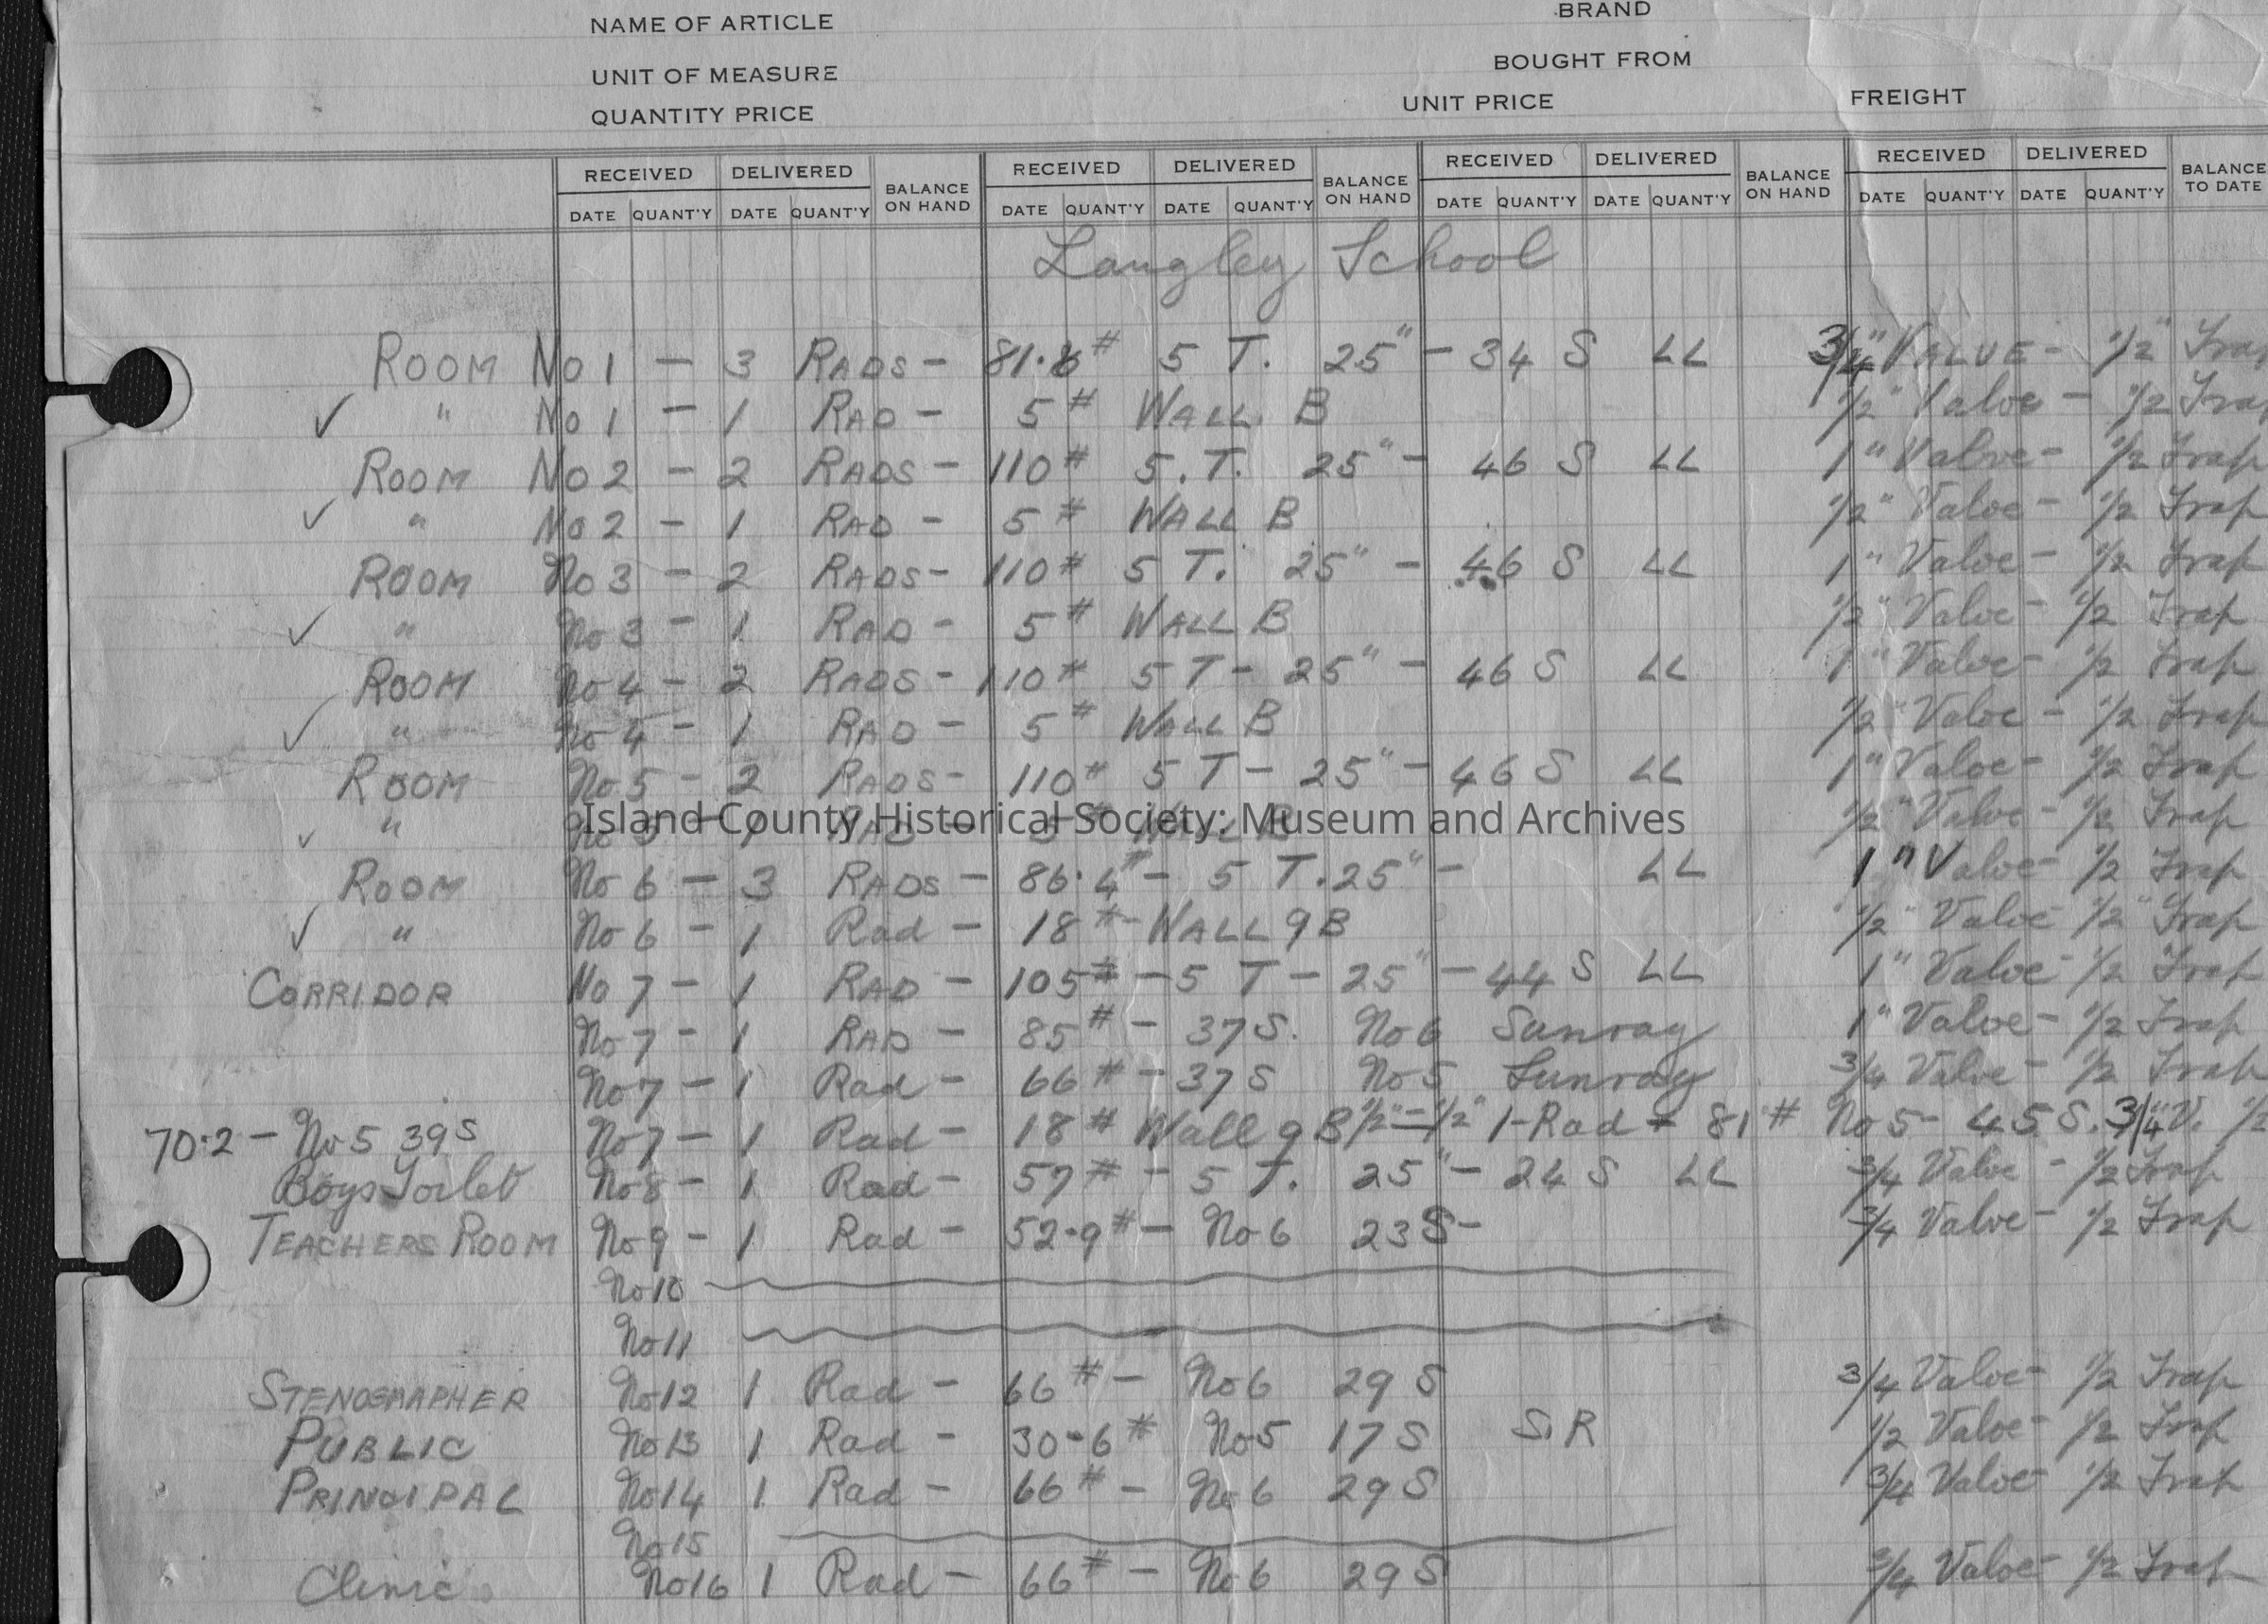 NAME OF ARTICLE BRAND
UNIT OF MEASURE BOUGHT FROM
QUANTITY PRICE UNIT PRICE FREIGHT
RECEIVED DELIVERED BALANCE ON HAND RECEIVED DELIVERED BALANCE ON HAND RECEIVED DELIVERED BALANCE ON HAND RECEIVED DELIVERED BALANCE TO DATE
DATE QUANT'Y DATE QUANT'Y DATE QUANT'Y DATE QUANT'Y DATE QUANT'Y DATE QUANT'Y DATE QUANT'Y DATE QUANT'Y
Langley School
ROOM No 1 — 3 RADS — 81.6# 5 T. 25" — 34 S LL 3/4" VALVE — 1/2" Trap
✓ " No 1 — 1 RAD — 5# WALL B 1/2" Valve — 1/2 Trap
ROOM No 2 — 2 RADS — 110# 5. T. 25" — 46 S LL 1" Valve — 1/2 Trap
✓ " No 2 — 1 RAD — 5# WALL B 1/2" Valve — 1/2 Trap
ROOM No 3 — 2 RADS — 110# 5 T. 25" — 46 S LL 1" Valve — 1/2 Trap
✓ " No 3 — 1 RAD — 5# WALL B 1/2" Valve — 1/2 Trap
ROOM No 4 — 2 RADS — 110# 5 T — 25" — 46 S LL 1" Valve — 1/2 Trap
✓ " No 4 — 1 RAD — 5# WALL B 1/2" Valve — 1/2 Trap
ROOM No 5 — 2 RADS — 110# 5 T — 25" — 46 S LL 1" Valve — 1/2 Trap
✓ " No 5 — 1 RAD — 5# WALL B 1/2" Valve — 1/2 Trap
Island County Historical Society: Museum and Archives
ROOM No 6 — 3 RADS — 86.4# — 5 T. 25" — LL 1" Valve — 1/2 Trap
✓ " No 6 — 1 Rad — 18# — WALL 9 B 1/2" Valve 1/2" Trap
CORRIDOR No 7 — 1 RAD — 105# — 5 T — 25" — 44 S LL 1" Valve — 1/2 Trap
No 7 — 1 RAD — 85# — 37 S. No 6 Sunray 1" Valve — 1/2 Trap
No 7 — 1 Rad — 66# — 37 S No 5 Sunray 3/4 Valve — 1/2 Trap
70.2 — No 5 39 S No 7 — 1 Rad — 18# Wall 9 B 1/2" — 1/2" 1-Rad — 81# No 5 — 45 S. 3/4" V. 1/2
Boys Toilet No 8 — 1 Rad — 57# — 5 T. 25" — 24 S LL 3/4 Valve — 1/2 Trap
TEACHERS ROOM No 9 — 1 Rad — 52.9# — No 6 23 S — 3/4 Valve — 1/2 Trap
No 10
No 11
STENOGRAPHER No 12 1 Rad — 66# — No 6 29 S 3/4 Valve — 1/2 Trap
PUBLIC No 13 1 Rad — 30-6# No 5 17 S S.R 1/2 Valve — 1/2 Trap
PRINCIPAL No 14 1 Rad — 66# — No 6 29 S 3/4 Valve — 1/2 Trap
No 15
Clinic No 16 1 Rad — 66# — No 6 29 S 3/4 Valve — 1/2 Trap